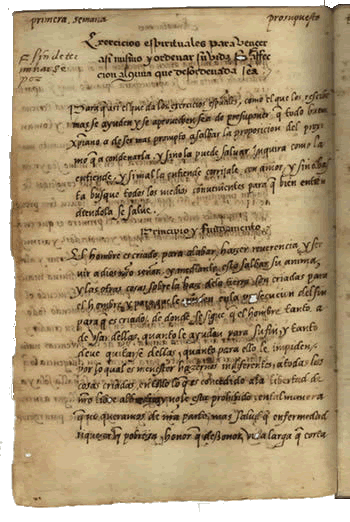 primera, semana
prosupuesto
Exercicios espirituales para vencer
a si mismo y ordenar su vida sin
cion alguna que desordenada sea
Para q̃ asi el que da los exercicios espũales, como el que los rescibe
mas se ayuden y se aprouechen, se a de presuponer, q̃ todo buen
xpiano a de ser mas prompto a saluar la proposicion del pro
ximo q̃ a condenarla. y si no la puede saluar, inquira como la
entiende, y si mal la entiende corrijale con amor, y si no bas
ta busque todos los medios conuenientes para q̃ bien enten
diendola se salue.
Principio y fundamento
El hombre es criado para alabar, hazer reuerencia, y ser
uir a dios nrõ señor, y mediante esto saluar su anima,
y las otras cosas sobre la haz de la tierra son criadas para
el hombre, y para que le en la prosecucion del fin
para q̃ es criado. de donde se sigue q̃ el hombre tanto a
de vsar dellas, quanto le ayudan para su fin, y tanto
deue quitarse dellas, quanto para ello le impiden.
por lo qual es menester hazernos indiferentes a todas las
cosas criadas, en todo lo q̃ es concedido a la libertad de
nrõ libre albedrio, y no le esta prohibido, en tal manera
que no queramos de nrã parte, mas salud q̃ enfermedad
riqueza q̃ pobreza, honor q̃ deshonor, vida larga q̃ corta